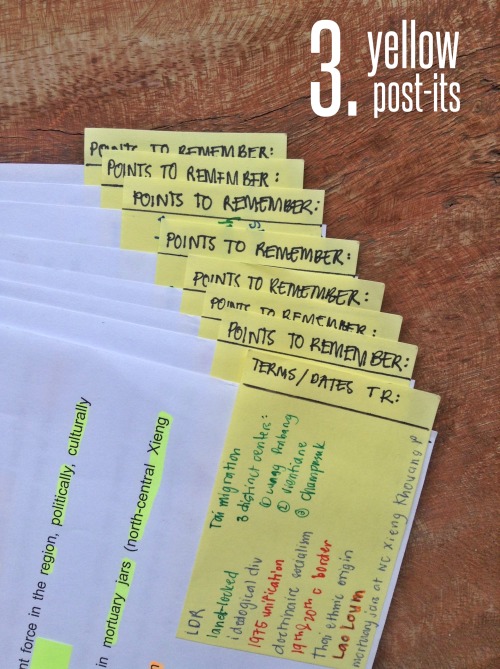 3. yellow
post-its
POINTS TO REMEMBER:
POINTS TO REMEMBER:
POINTS TO REMEMBER:
POINTS TO REMEMBER:
POINTS TO REMEMBER:
POINTS TO REMEMBER:
POINTS TO REMEMBER:
TERMS/DATES TR:
LDR
land-locked
ideological div
1975 unification
doctrinaire socialism
19th & 20th c border
Thai ethnic origin
Lao Loum
mortuary jars at NC Xieng Khouang P
Tai migration
3 distinct centers:
① Luang Prabang
② Vientiane
③ Champasak
nt force in the region, politically, culturally
in mortuary jars (north-central Xieng